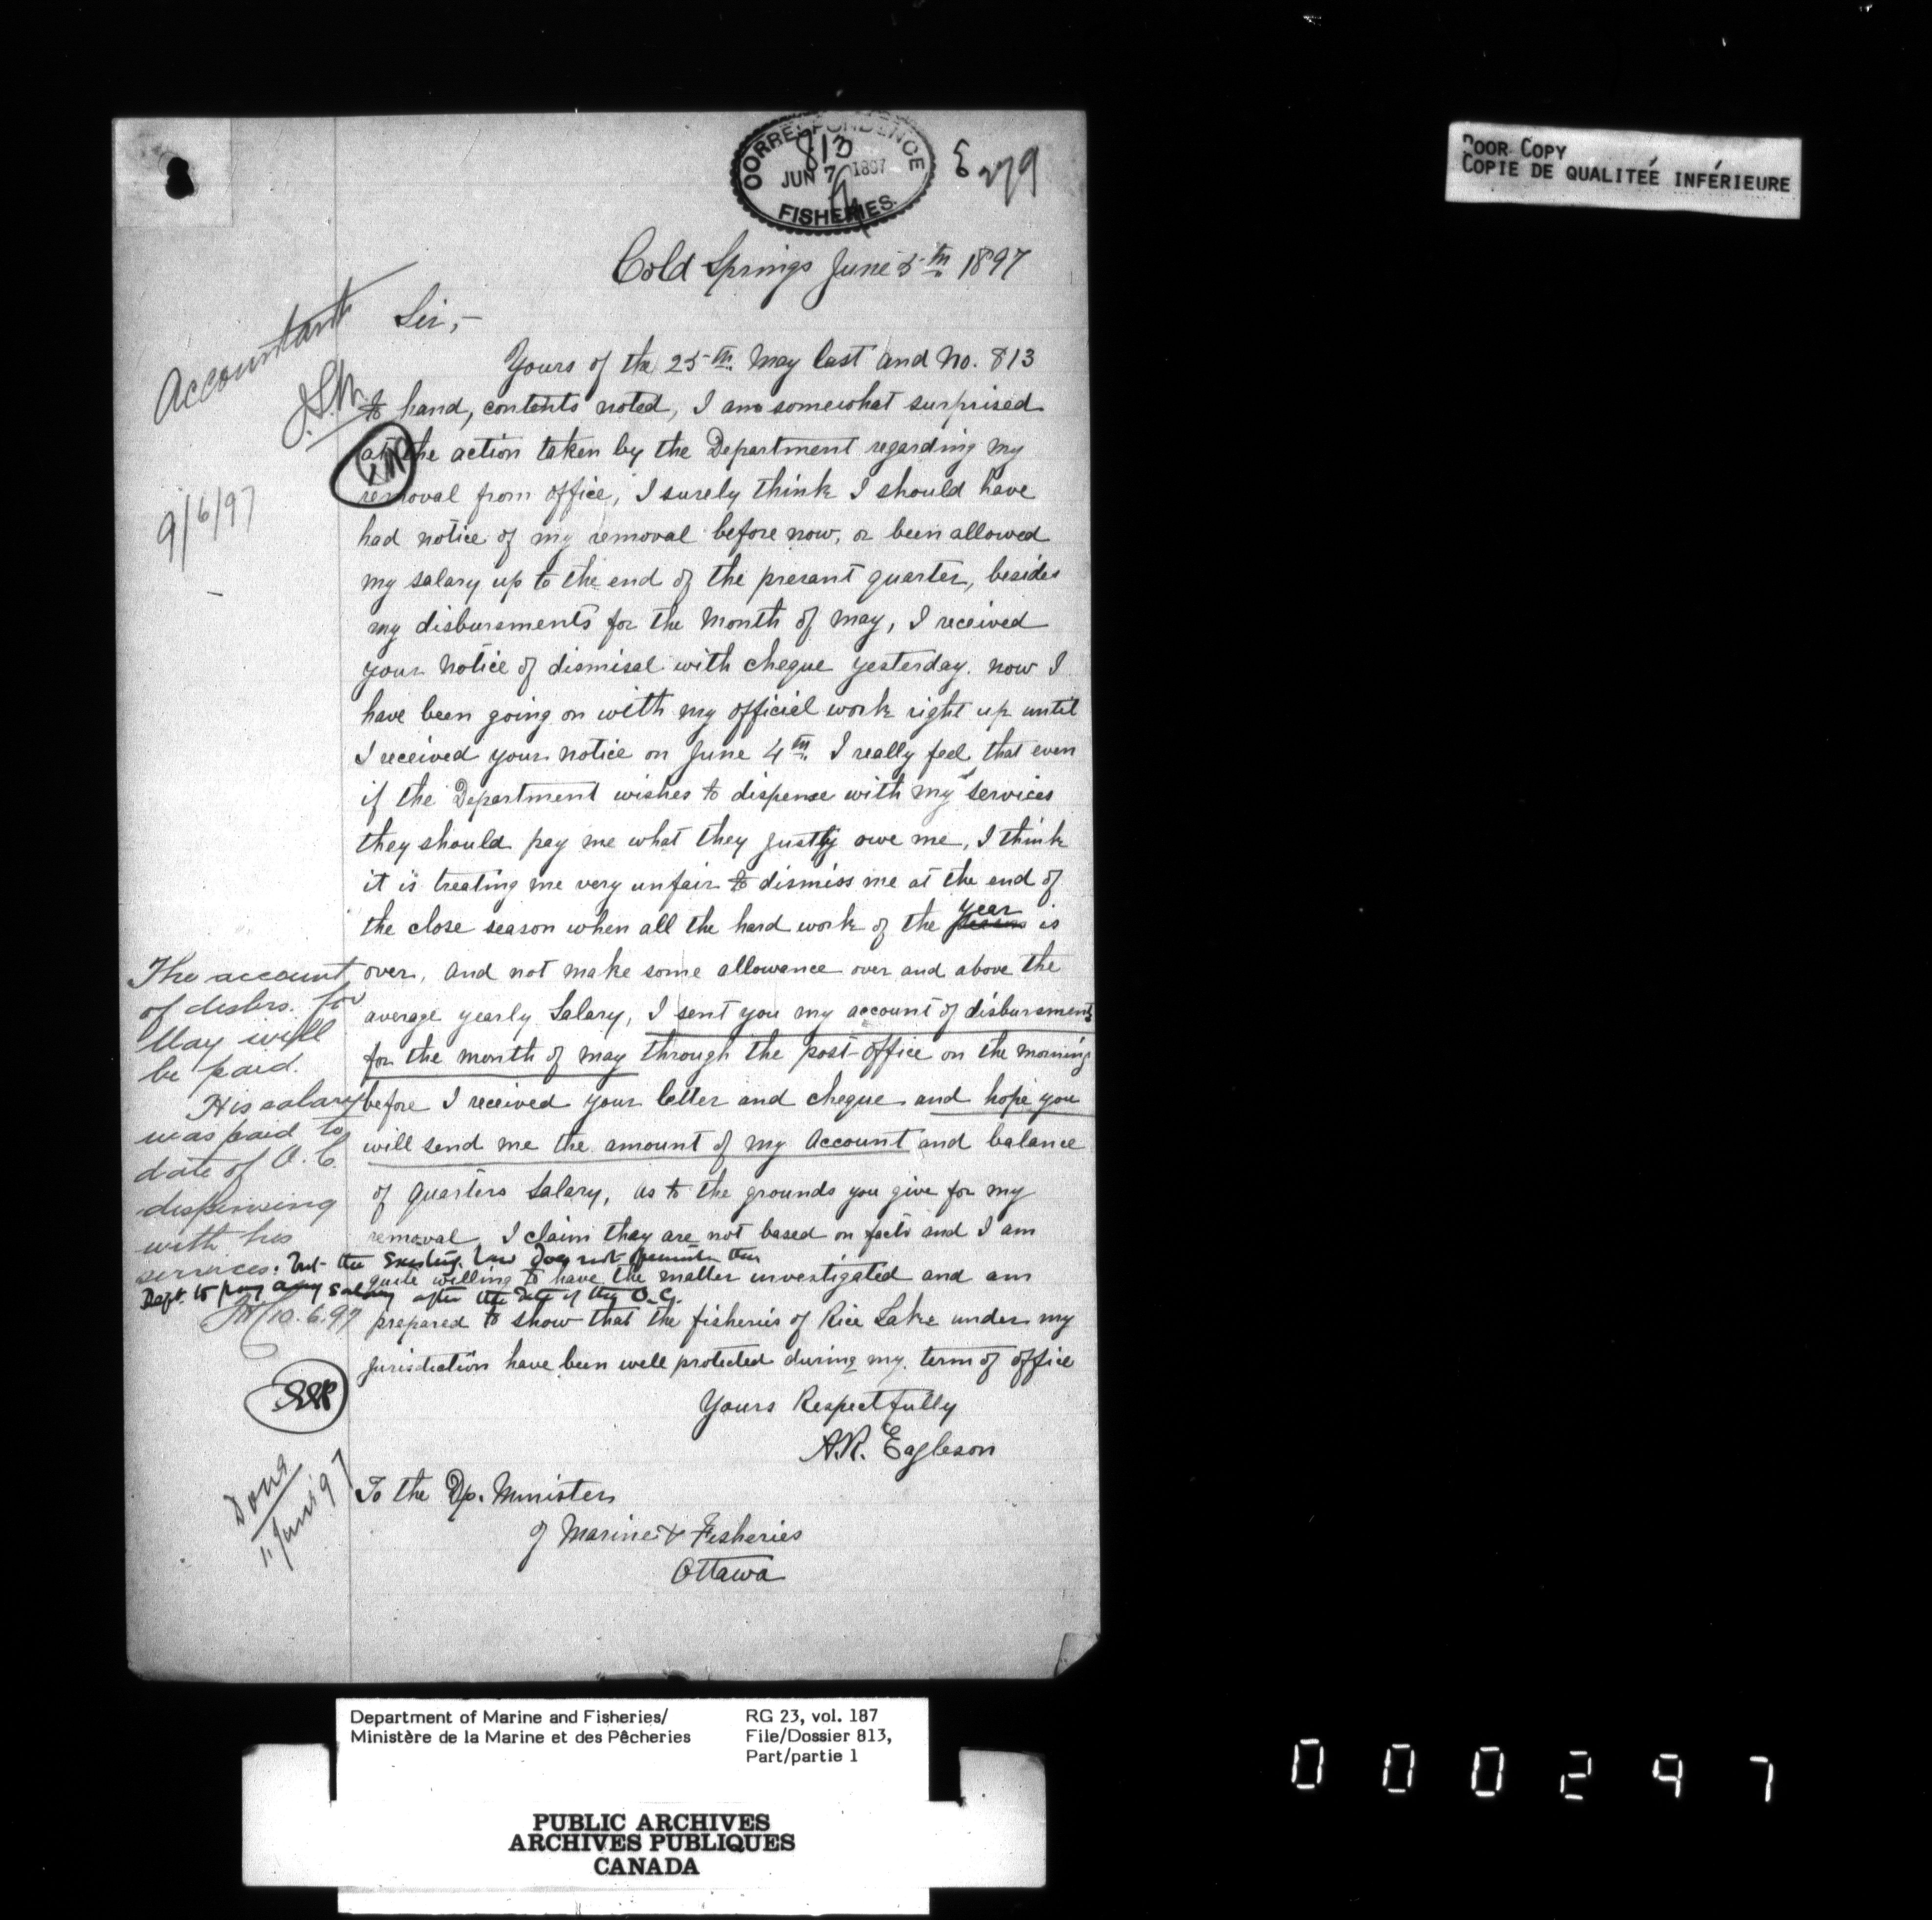 CORRESPONDENCE
813
JUN 7 1897
FISHERIES.
279
POOR COPY
COPIE DE QUALITEÉ INFÉRIEURE
Cold Springs June 5th 1897
Accountant
9/6/97
Sir,-
Yours of the 25th May last and No. 813
to hand, contents noted, I am somewhat surprised
at the action taken by the Department regarding my
removal from office, I surely think I should have
had notice of my removal before now, or been allowed
my salary up to the end of the presant quarter, besides
my disbursments for the month of may, I received
your notice of dismisal with cheque yesterday. now I
have been going on with my official work right up until
I received your notice on June 4th. I really feel that even
if the Department wishes to dispense with my services
they should pay me what they justly owe me, I think
it is treating me very unfair to dismiss me at the end of
the close season when all the hard work of the year is
over, and not make some allowance over and above the
average yearly Salary, I sent you my account of disbursments
for the month of may through the post-office on the morning
before I received your letter and cheque and hope you
will send me the amount of my Account and balance
of quarters Salary, as to the grounds you give for my
removal, I claim they are not based on facts and I am
quite willing to have the matter investigated and am
prepared to show that the fisheries of Rice Lake under my
jurisdiction have been well protected during my term of office
Yours Respectfully
A.R. Eagleson
To the Dp. Minister
of Marine & Fisheries
Ottawa
The account
of disbrs. for
May will
be paid.
His salary
was paid to
date of O.C.
dispensing
with his
services. but the existing law does not permit the
Dept. to pay any salary after the date of the O.C.
10.6.97
Done
11 June 97
Department of Marine and Fisheries/
Ministère de la Marine et des Pêcheries
RG 23, vol. 187
File/Dossier 813,
Part/partie 1
PUBLIC ARCHIVES
ARCHIVES PUBLIQUES
CANADA
000297